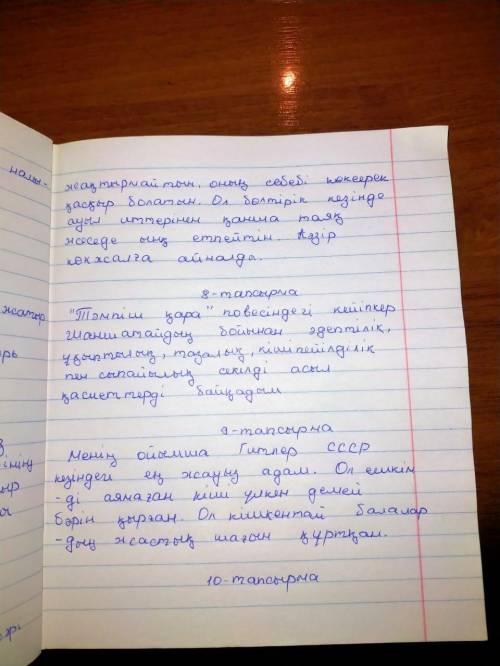 налы-
жатыр
рь
з,
нің
ыр
ы
жақтырмайтын, оның себебі көксерек
қасқыр болатын. Ол бөлтірік кезінде
ауыл иттерінен қанша таяқ
жеседе ыңқ етпейтін. Қазір
көкжалға айналды.
8-тапсырма
"Тәмпіш қара" повесіндегі кейіпкер
Шаншатайдың бойынан әдептілік,
ұқыптылық, тазалық, кішіпейілділік
пен сыпайылық секілді асыл
қасиеттерді байқадым
9-тапсырма
Менің ойымша Гитлер СССР
кезіндегі ең жауыз адам. Ол ешкім
-ді аямаған кіші үлкен демей
бәрін қырған. Ол кішкентай балалар
-дың жастық шағын құртқан.
10-тапсырма